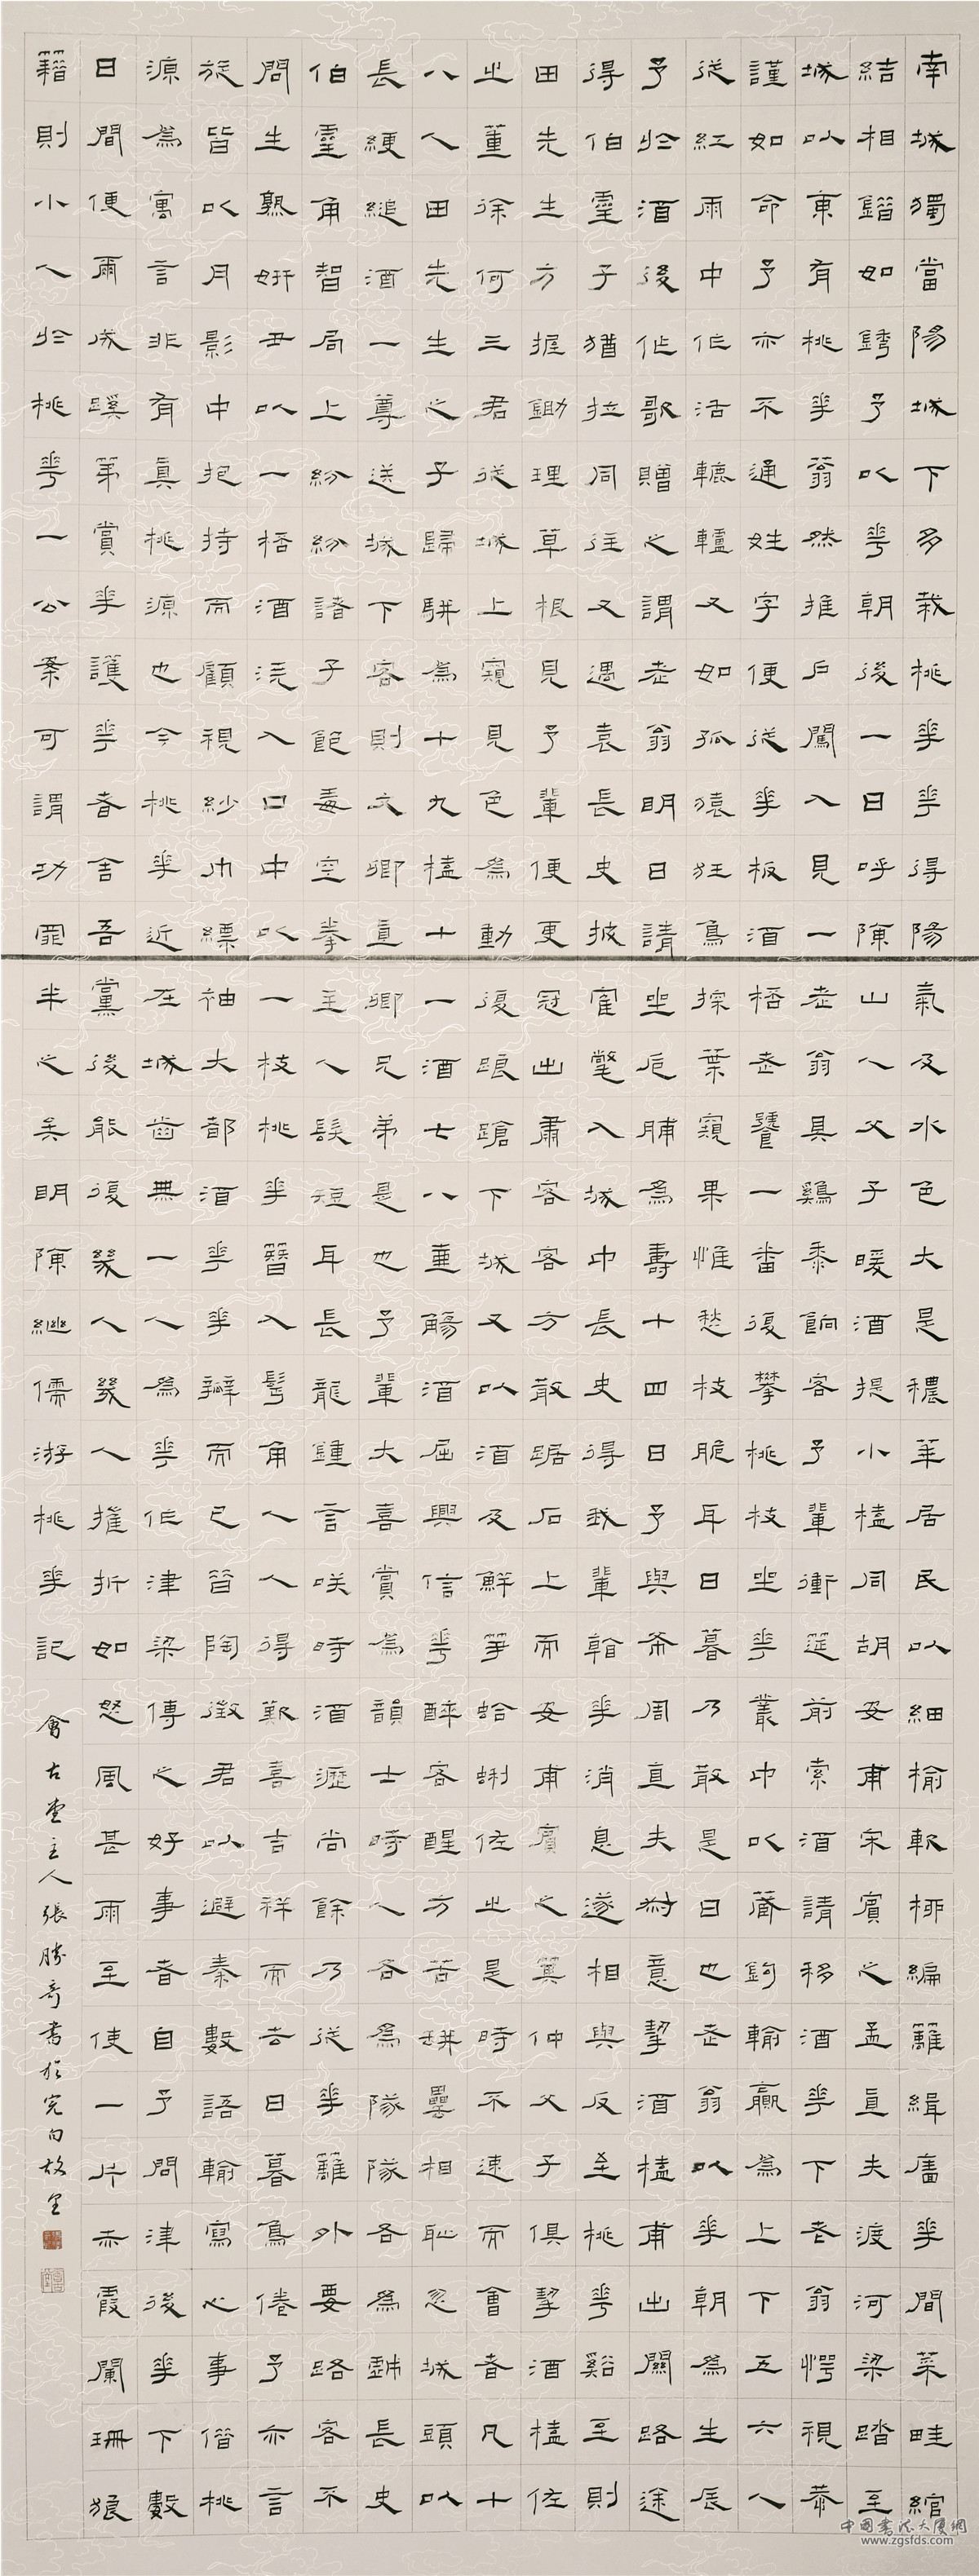 南城獨當陽城下多栽桃華華得陽氣及水色大是穠華居民以細榆軟柳編籬緝牆華間菜畦綰
結相錙如銹予以華朝後一日呼陳山人父子暖酒提小榼同胡安甫宋賓之孟直夫渡河梁踏至
城以東有桃華翁然推戶闖入見一老翁具鷄黍餉客予輩衝筵前索酒請移酒華下老翁愕視恭
謹如命予亦不通姓字便從華板酒桮老饕一番復攀桃枝坐華叢中以藏鉤輸贏為上下五六人
從紅雨中作活轆轤又如孤猿狂鳥探葉窺果惟愁枝脆耳日暮乃散是日也老翁以華朝為生辰
予於酒後作歌贈之謂老翁明日請坐卮脯為壽十四日予與希周直夫叔意挈酒榼甫出關路途
得伯靈子猶拉同往又遇袁長史披宦氅入城中長史得我輩翰華消息遂相與反至桃華谿至則
田先生方握鋤理草根見予輩便更冠出肅客客方散踞石上而安甫賓之箕仲父子俱挈酒榼佐
之董徐何三君從城上窺見色為動復踉蹌下城又以酒及鮮筍蛤蜊佐之是時不速而會者凡十
八人田先生之子歸駢為十九榼十一酒七八壺觴酒屈興信華醉客醒方苦瓶罍相恥忽城頭以
長綆縋酒一尊送城下客則文卿直卿兄弟是也予輩大喜賞為韻士時人各為隊隊各為戲長史
伯靈角智局上紛紛諸子飽毒空拳主人髮短耳長龍鍾言咲時酒瀝尚餘乃從華籬外要路客不
問生熟妍丑以一桮酒澆入口中以一枝桃華簪入髩角人人得歡喜吉祥而去日暮鳥倦予亦言
旋皆以月影中抱持而顧視紗巾縹袖大都酒華華瓣而已昔陶徵君以避秦數語輸寫心事借桃
源為寓言非有真桃源也今桃華近在城齒無一人為華作津梁傳之好事者自予問津後華下數
日間便爾成蹊第賞華護華者舍吾黨後能復幾人幾人摧折如怒風甚雨至使一片赤霞闌珊狼
籍則小人於桃華一公案可謂功罪半之矣明陳繼儒游桃華記 會古堂主人張勝奇書於宛句故里
中國書法大廈網
www.zgsfds.com